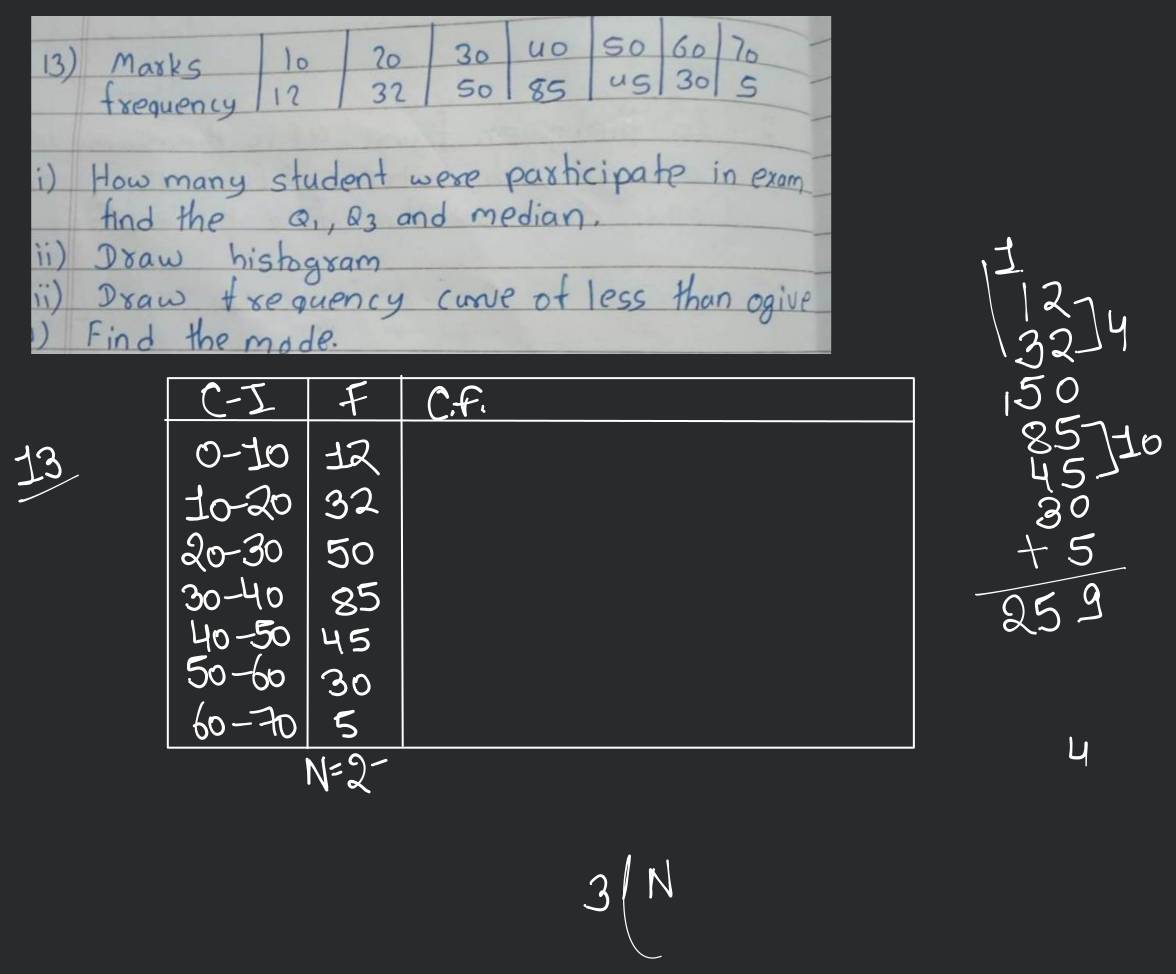 13) Marks 10 20 30 40 50 60 70
frequency 12 32 50 85 45 30 5
i) How many student were participate in exam
find the Q1, Q3 and median.
ii) Draw histogram
ii) Draw frequency curve of less than ogive
) Find the mode.
13
C-I F C.f.
0-10 12
10-20 32
20-30 50
30-40 85
40-50 45
50-60 30
60-70 5
N=2-
1
12
32 ]4
150
85
45 ]10
30
+ 5
259
4
3(N